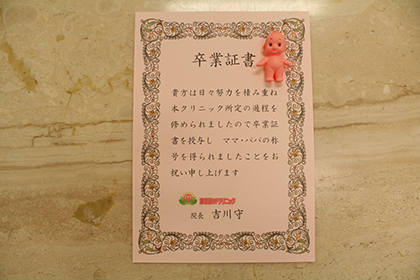 卒業証書
貴方は日々努力を積み重ね
本クリニック所定の過程を
修められましたので卒業証
書を授与し　ママ・パパの称
号を得られましたことをお
祝い申し上げます
院長　吉川守